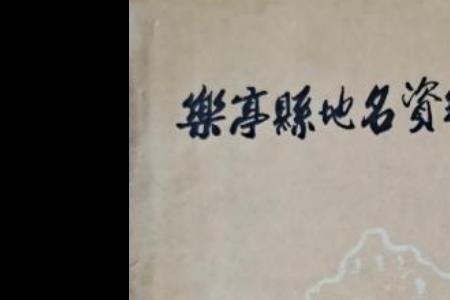 樂亭縣地名資